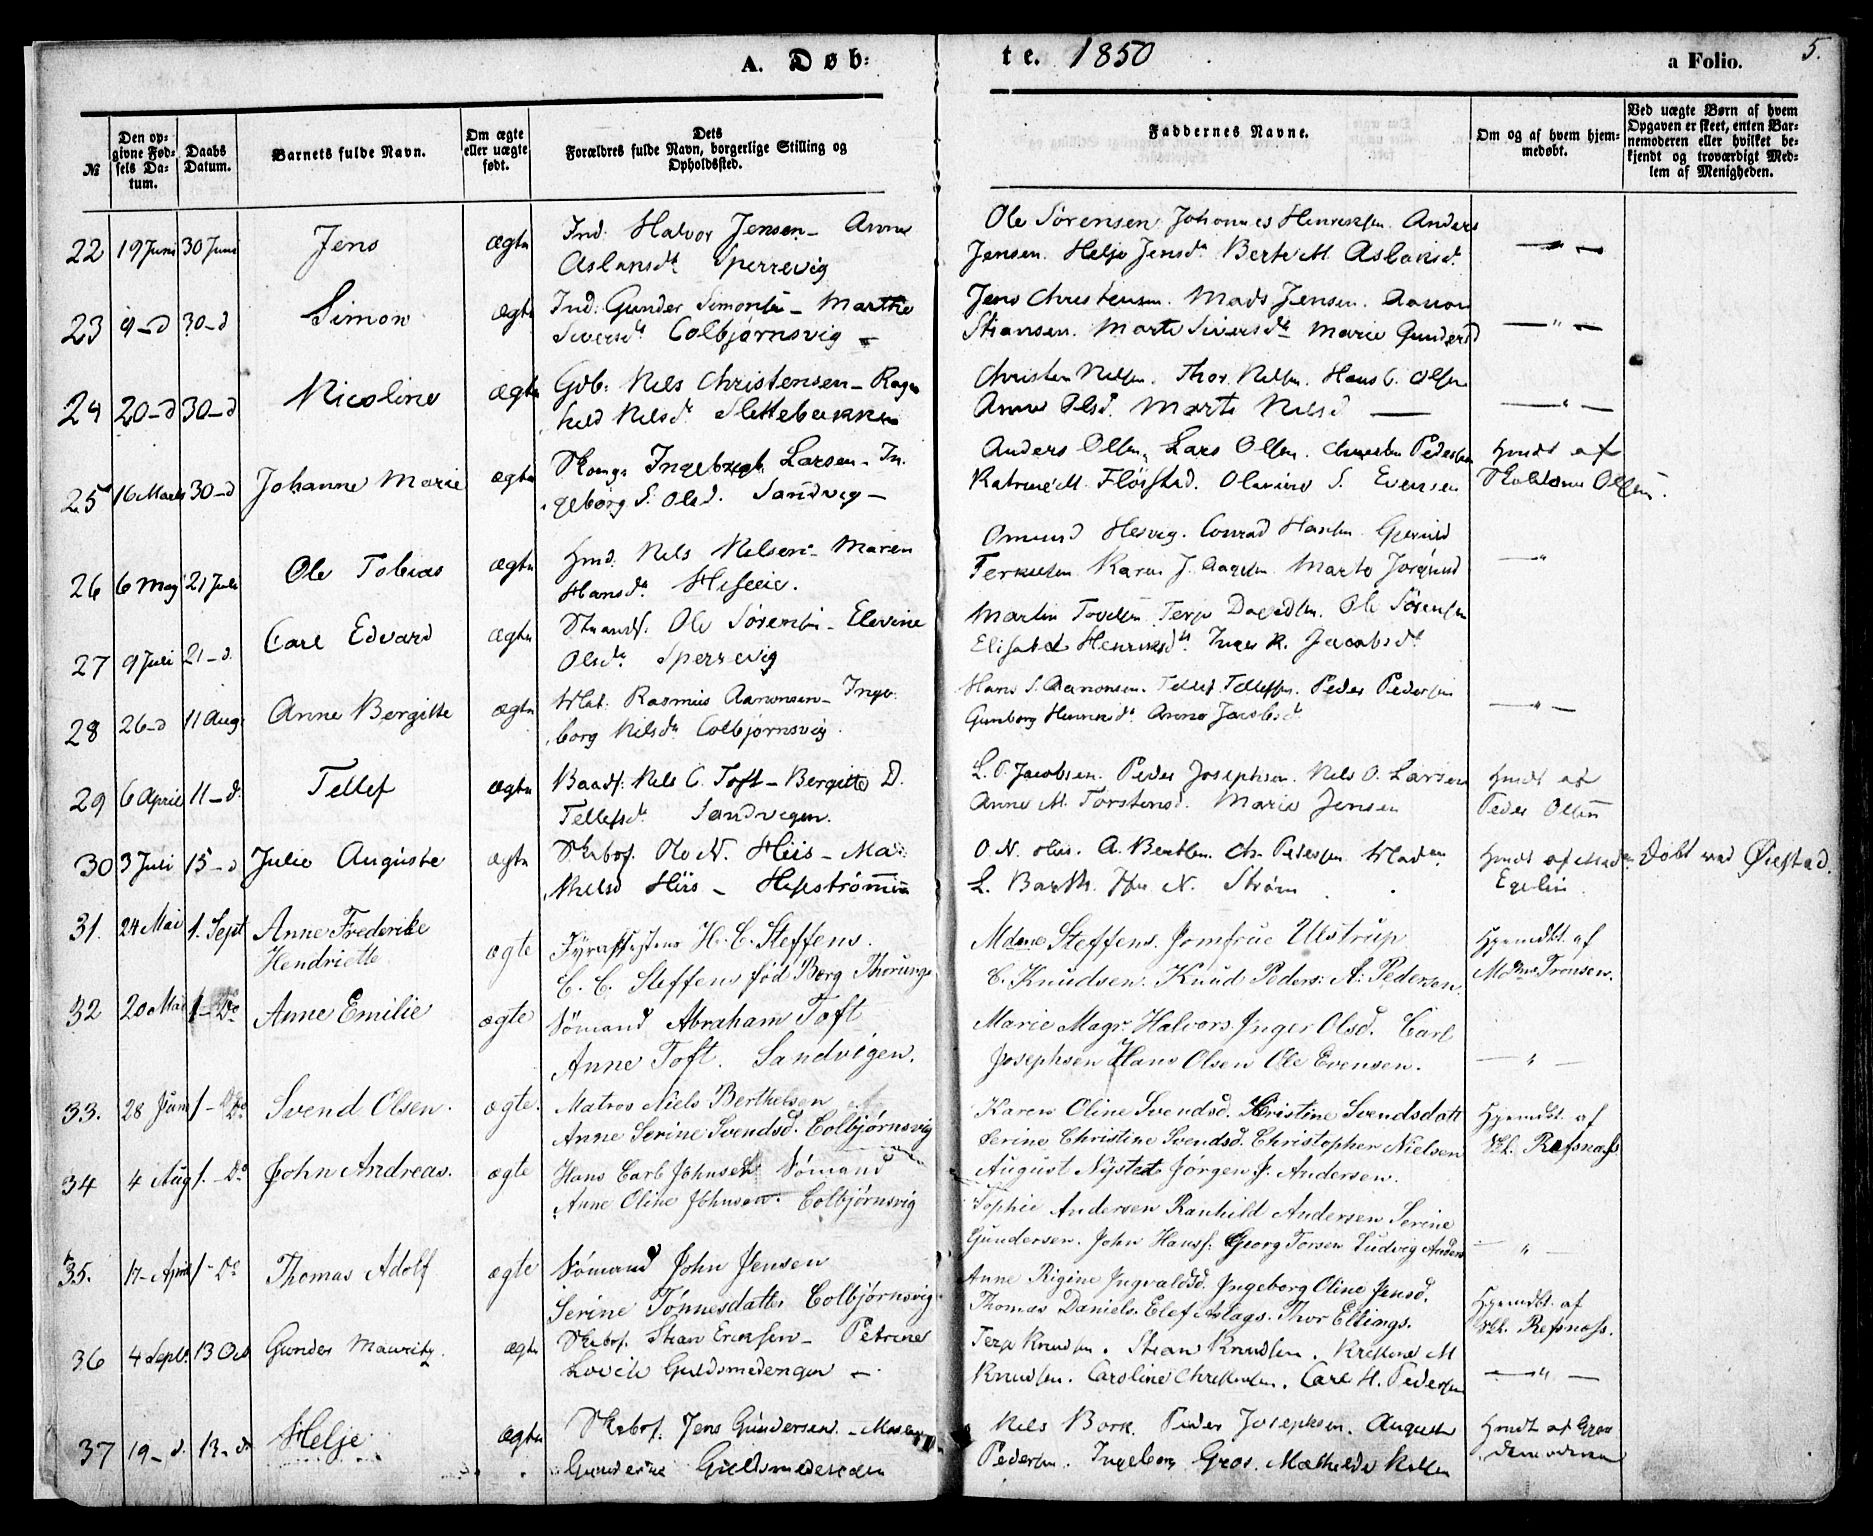 A. Døb:
te. 1850
a Folio.
5.
№
Den op-
givne Fød-
sels Da-
tum.
Daabs
Datum.
Barnets fulde Navn.
Om ægte
eller uægte
født.
Dets
Forældres fulde Navn, borgerlige Stilling og
Opholdssted.
Faddernes Navne.
Om og af hvem hjem-
medøbt.
Ved uægte Børn af hvem
Opgaven er skeet, enten Bar-
nemoderen eller hvilket be-
kjendt og troværdigt Med-
lem af Menigheden.
22 19 Juni 30 Juni Jens ægte Ind. Halvor Jensen – Anne
Aslaksdt. Sperrevig
Ole Sørensen Johannes Henriksen Anders
Jensen. Helje Jensdt Berte M. Aslaksd. — " —
23 9–d 30–d Simon ægte Ind. Gunder Simonsen – Marthe
Siversdt Colbjørnsvig –
Jens Christensen. Mads Jensen. Aanon
Stiansen. Marte Siversdt Marie Gundersd — " —
24 20–d 30–d Nicoline ægte Gdb. Nils Christensen – Ragn
hild Nilsdt Slettebakken
Christen Nilsen. Thor Nilsen. Hans C. Olsen
Anne Olsd. Marte Nilsd — — " —
25 16 Marts 30–d Johanne Marie ægte Ingebregt Larsen – In
geborg S. Olsd. Sandvig –
Anders Olsen, Lars Olsen. Christen Pedersen
Katrine M. Fløistad. Olavine S. Evensen
Hmdt af
Olsen.
26 6 May 21 Juli Ole Tobias ægte Hmd. Nils Nilsen – Maren
Hansdt Hiseie.
Omund Hesvig. Conrad Hansen
Terkelsen Karen J. Aagesen Marte — "
27 9 Juli 21–d. Carl Edvard ægte Ole Sørensen – Elevine
Olsdt Sperrevig
Martin Tovelsen Terje Davidsen. Ole Sørensen
Elisabet Henriksdt. Inger K. Jacobsdt
28 26–d 11 Aug. Anne Bergitte ægte Mat. Rasmus Aanonsen – Inge
borg Nilsdt Colbjørnsvig.
Hans S. Aanonsen. Tellef Tellefsen. Peder Pedersen
Gunborg Anne Jacobsdt — " —
29 6 April 11–d. Tellef ægte Baadsf. Nils C. Toft – Bergitte D.
Tellefsdt Sandvigen.
L. P. Jacobsen. Peder Josephsen. Nils O. Larsen
Anne M. Torstensd. Marie Jensen
Hmdt af
Peder Olsen
30 3 Juli 15–d Julie Auguste ægte Skibsf. Ole N. Hiis – Ma
Nielsd Hiis – Hisstrømmen
O. N. Hiis. A. Berthsen. Ch. Pedersen Madam
L. Barth. N. Strøm.
Hmdt af Madm
Egelin.
Døbt ved Øiestad.
31. 24 Mai 1. Sept Anne Frederike
Hendriette.
ægte H. C. Steffens.
C. C. Steffens fød Borg Thorungs
Mdme Steffens. Jomfrue Ulstrup
C. Knudsen. Knud Peders: A: Pedersen.
Hjemdt. af
Mdme Tronsen.
32 20 Mai 1–Do Anne Emilie ægte Sømand Abraham Toft
Anne Toft. Sandvigen.
Marie Magr. Halvors. Inger Olsd. Carl
Josephsen Hans Olsen Ole Evensen. — " —
33. 28 Juni 1–Do Svend Olsen. ægte. Matros Niels Berthelsen
Anne Serine Svendsd. Colbjørnsvig
Karen Oline Svendsd. Kristine Svendsdatt
Serine Christine Svendsd. Christopher Nielsen
Hjemdt. af
Refsnæs
34 4 Aug 1. Do John Andreas. ægte Hans Carl Johnsen Sømand
Anne Oline Johnsen. Colbjørnsvig
August Nystedt Jørgen J. Andersen.
Sophie Andersen Ranhild Andersen Serine
Gundersen. John Hansf. Georg Torsen Ludvig Anders — " —
35. 17 April 1–Do Thomas Adolf ægte Sømand John Jensen
Serine Tønnesdatter Colbjørnsvig
Anne Rigine Ingvaldsd. Ingeborg Oline Jensd.
Thomas Daniels. Elef Aslags. Thor Ellings.
Hjemdt. af
Refsnæss.
36 4 Septb. 13 Oct Gunder Mauritz ægte Skibsf. Stian Eriksen – Petrine
Lovise Guldsmedengen –
Terje Knudsen. Stian Knudsen. Kristine M
Knudsen. Caroline Christensen. Carl H. Pedersen — " —
37 19–d. 13–d Helje ægte Skibsf. Jens Gundersen. – Maren
Gunderine
Nils Bork. Peder Josephsen. August
Pedersen. Ingeborg Gros. Mathilde
Hmdt af